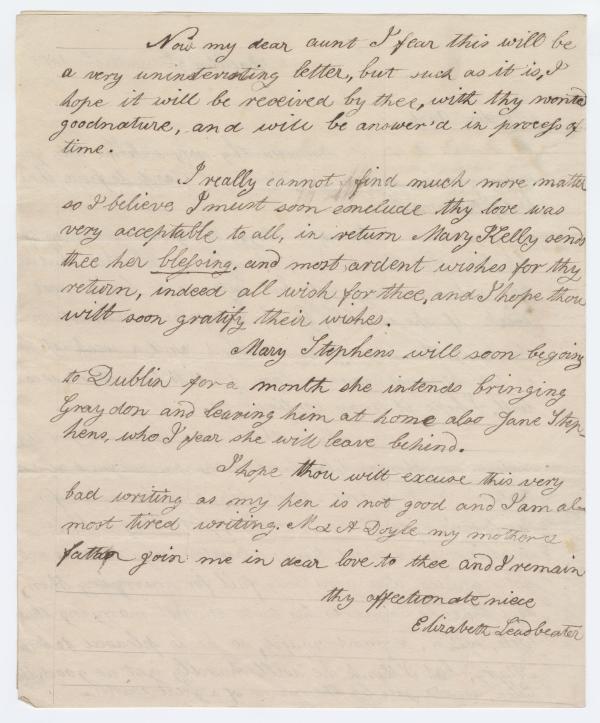 Now my dear aunt I fear this will be
a very uninteresting letter, but such as it is, I
hope it will be received by thee, with thy wonted
goodnature, and will be answer'd in process of
time.
I really cannot find much more matter
so I believe I must soon conclude thy love was
very acceptable to all, in return Mary Kelly sends
thee her blessing, and most ardent wishes for thy
return, indeed all wish for thee, and I hope thou
wilt soon gratify their wishes.
Mary Stephens will soon be going
to Dublin for a month she intends bringing
Graydon and leaving him at home also Jane Step-
hens, who I fear she will leave behind.
I hope thou wilt excuse this very
bad writing as my pen is not good and I am al-
most tired writing. M & A Doyle my mother &
father join me in dear love to thee and I remain
thy affectionate niece
Elizabeth Leadbeater